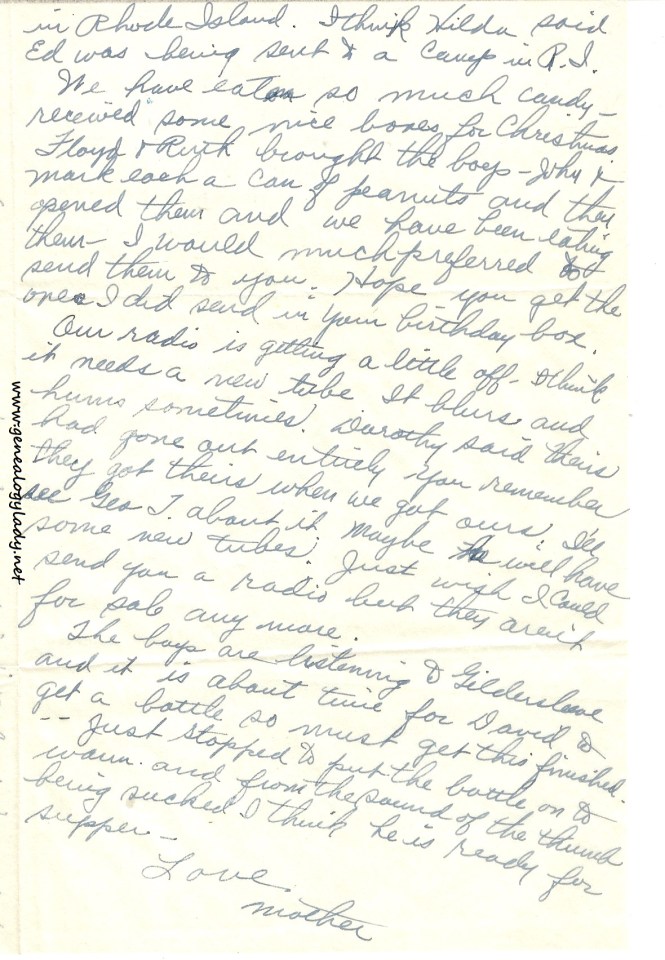 in Rhode Island. I think Hilda said
Ed was being sent to a camp in R.I.
We have eaten so much candy -
received some nice boxes for Christmas
Floyd & Ruth brought the boys - John &
mark each a can of peanuts and they
opened them and we have been eating
them - I would much preferred to
send them to you. Hope you get the
ones I did send in your birthday box.
Our radio is getting a little off - I think
it needs a new tube It blurs and
hums sometimes. Dorothy said theirs
had gone out entirely you remember
they got theirs when we got ours. I'll
see Geo T about it maybe he will have
some new tubes. Just wish I could
send you a radio but they aren't
for sale any more.
The boys are listening to Gildersleeve
and it is about time for David to
get a bottle so must get this finished.
-- Just stopped to put the bottle on to
warm. and from the sound of the thumb
being sucked I think he is ready for
supper -
Love,
mother
www.genealogylady.net